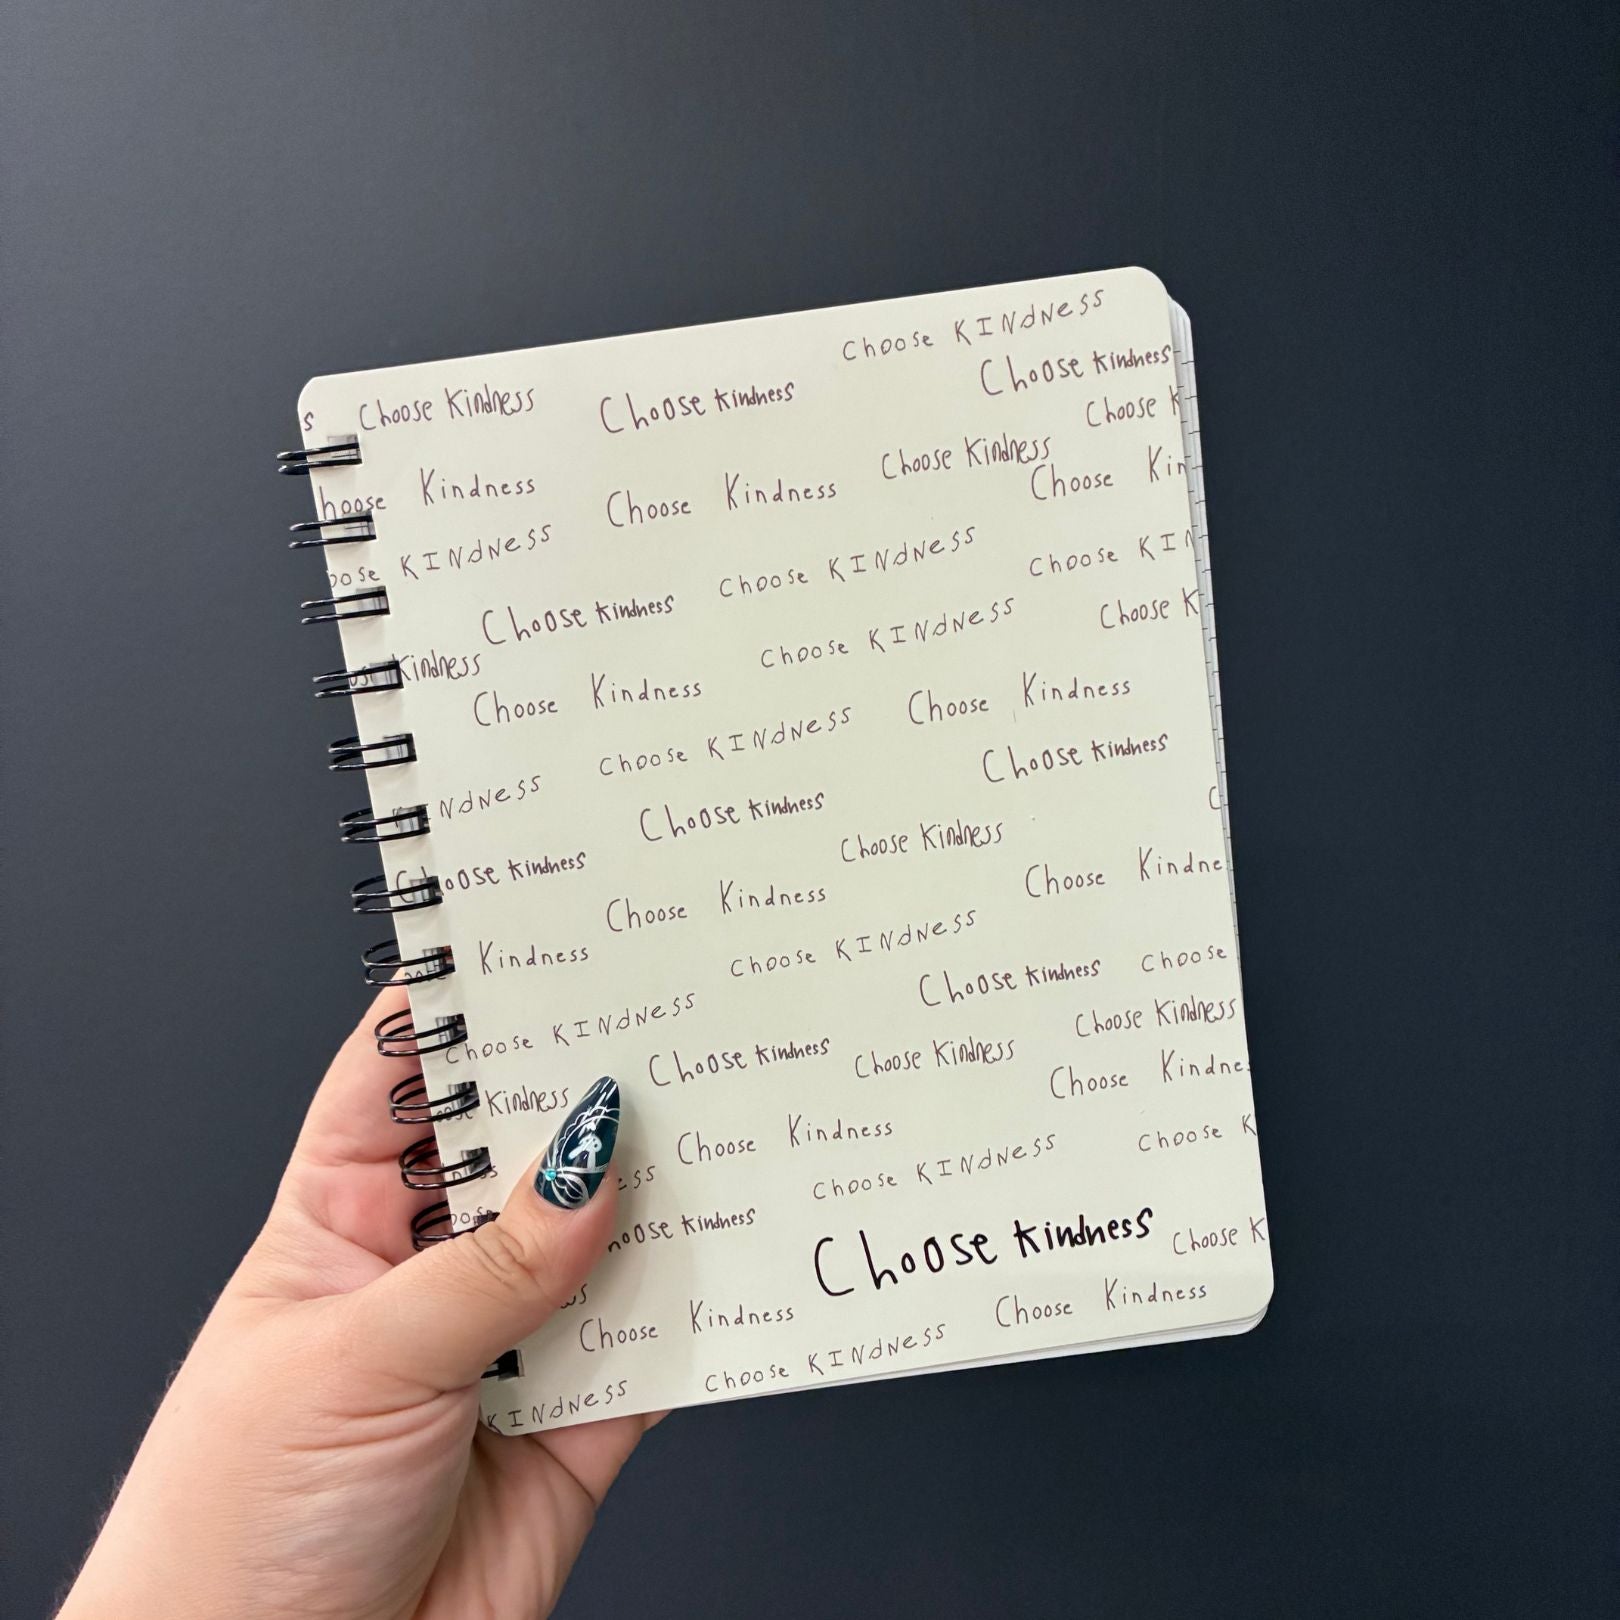 Choose KINdNess
s Choose Kindness Choose kindness Choose kindness
Choose K
hoose Kindness Choose Kindness Choose Kindness
Choose Kin
oose KINdNess Choose KINdNess Choose KIN
Choose kindness Choose KINdNess Choose K
ose Kindness
Choose Kindness Choose Kindness
Choose KINdNess Choose kindness
KINdNess Choose kindness C
Choose kindness Choose Kindness
Choose Kindness Choose Kindne
Kindness Choose KINdNess Choose
Choose KINdNess Choose kindness
Choose Kindness
oose Kindness Choose kindness Choose Kindness
Choose Kindne
Choose Kindness Choose K
ess Choose KINdNess
hoose kindness Choose kindness Choose K
Choose Kindness Choose Kindness
KINdNess Choose KINdNess